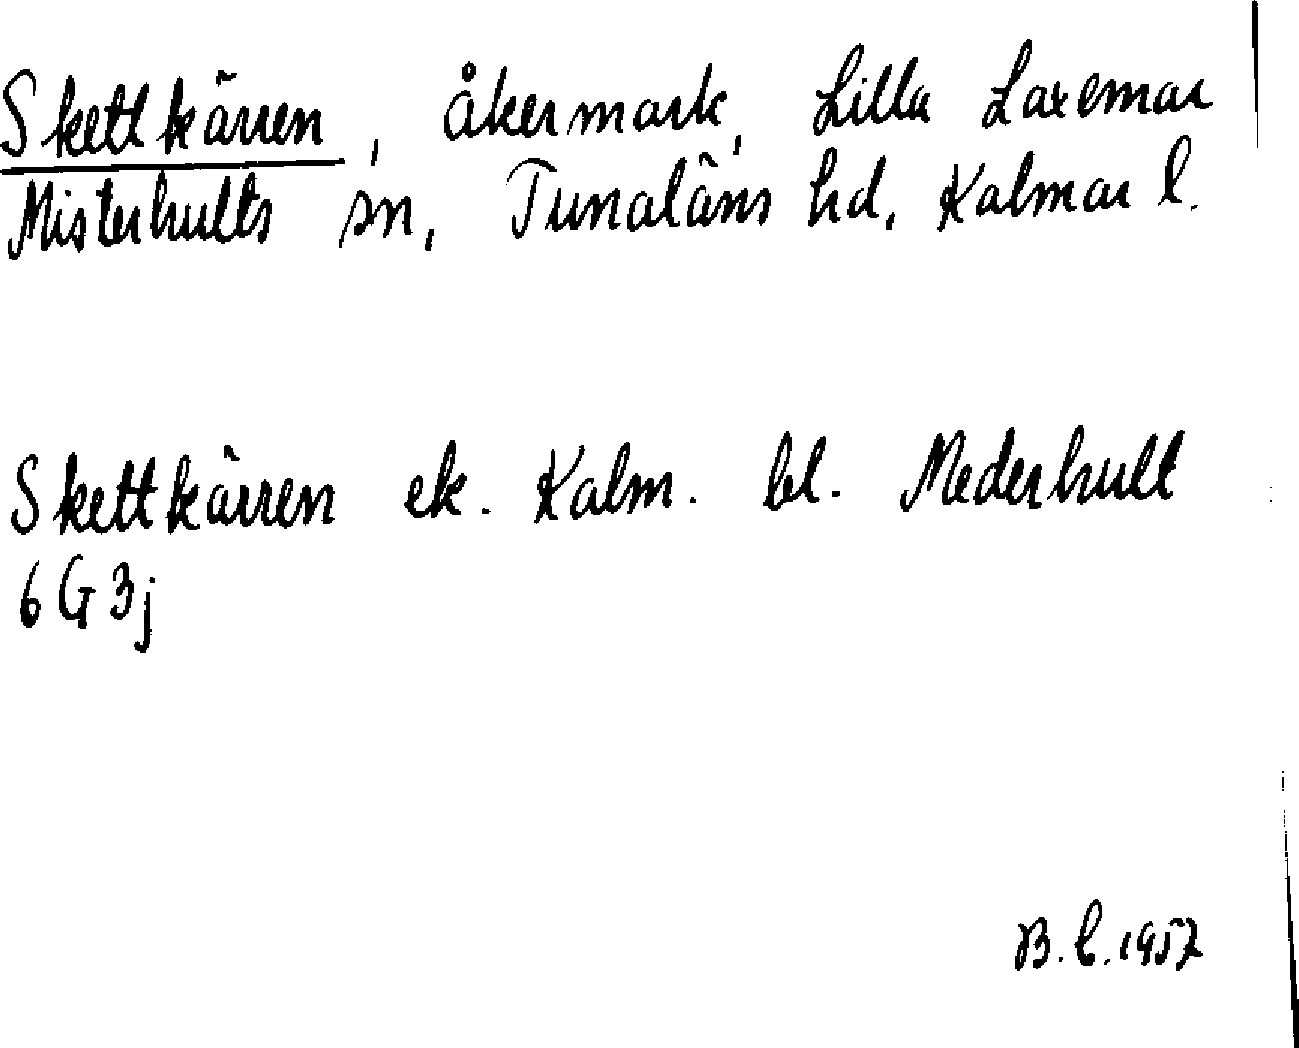 Skettkärren, åkermark, Lilla Laxemar
Misterhults sn, Tunaläns hd, Kalmar l.
Skettkärren ek. Kalm. bl. Mederhult
6G3j
B.C.1957